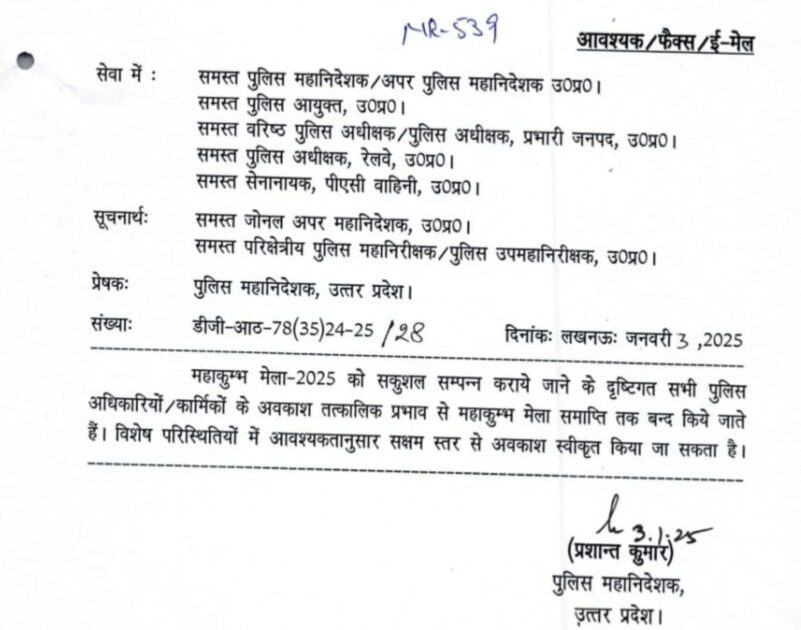 MR-539
आवश्यक/फैक्स/ई-मेल
सेवा में : समस्त पुलिस महानिदेशक/अपर पुलिस महानिदेशक उ0प्र0।
समस्त पुलिस आयुक्त, उ0प्र0।
समस्त वरिष्ठ पुलिस अधीक्षक/पुलिस अधीक्षक, प्रभारी जनपद, उ0प्र0।
समस्त पुलिस अधीक्षक, रेलवे, उ0प्र0।
समस्त सेनानायक, पीएसी वाहिनी, उ0प्र0।
सूचनार्थः समस्त जोनल अपर महानिदेशक, उ0प्र0।
समस्त परिक्षेत्रीय पुलिस महानिरीक्षक/पुलिस उपमहानिरीक्षक, उ0प्र0।
प्रेषकः पुलिस महानिदेशक, उत्तर प्रदेश।
संख्याः डीजी-आठ-78(35)24-25 /28 दिनांकः लखनऊः जनवरी 3 ,2025
महाकुम्भ मेला-2025 को सकुशल सम्पन्न कराये जाने के दृष्टिगत सभी पुलिस
अधिकारियों/कार्मिकों के अवकाश तत्कालिक प्रभाव से महाकुम्भ मेला समाप्ति तक बन्द किये जाते
हैं। विशेष परिस्थितियों में आवश्यकतानुसार सक्षम स्तर से अवकाश स्वीकृत किया जा सकता है।
3.1.25
(प्रशान्त कुमार)
पुलिस महानिदेशक,
उत्तर प्रदेश।